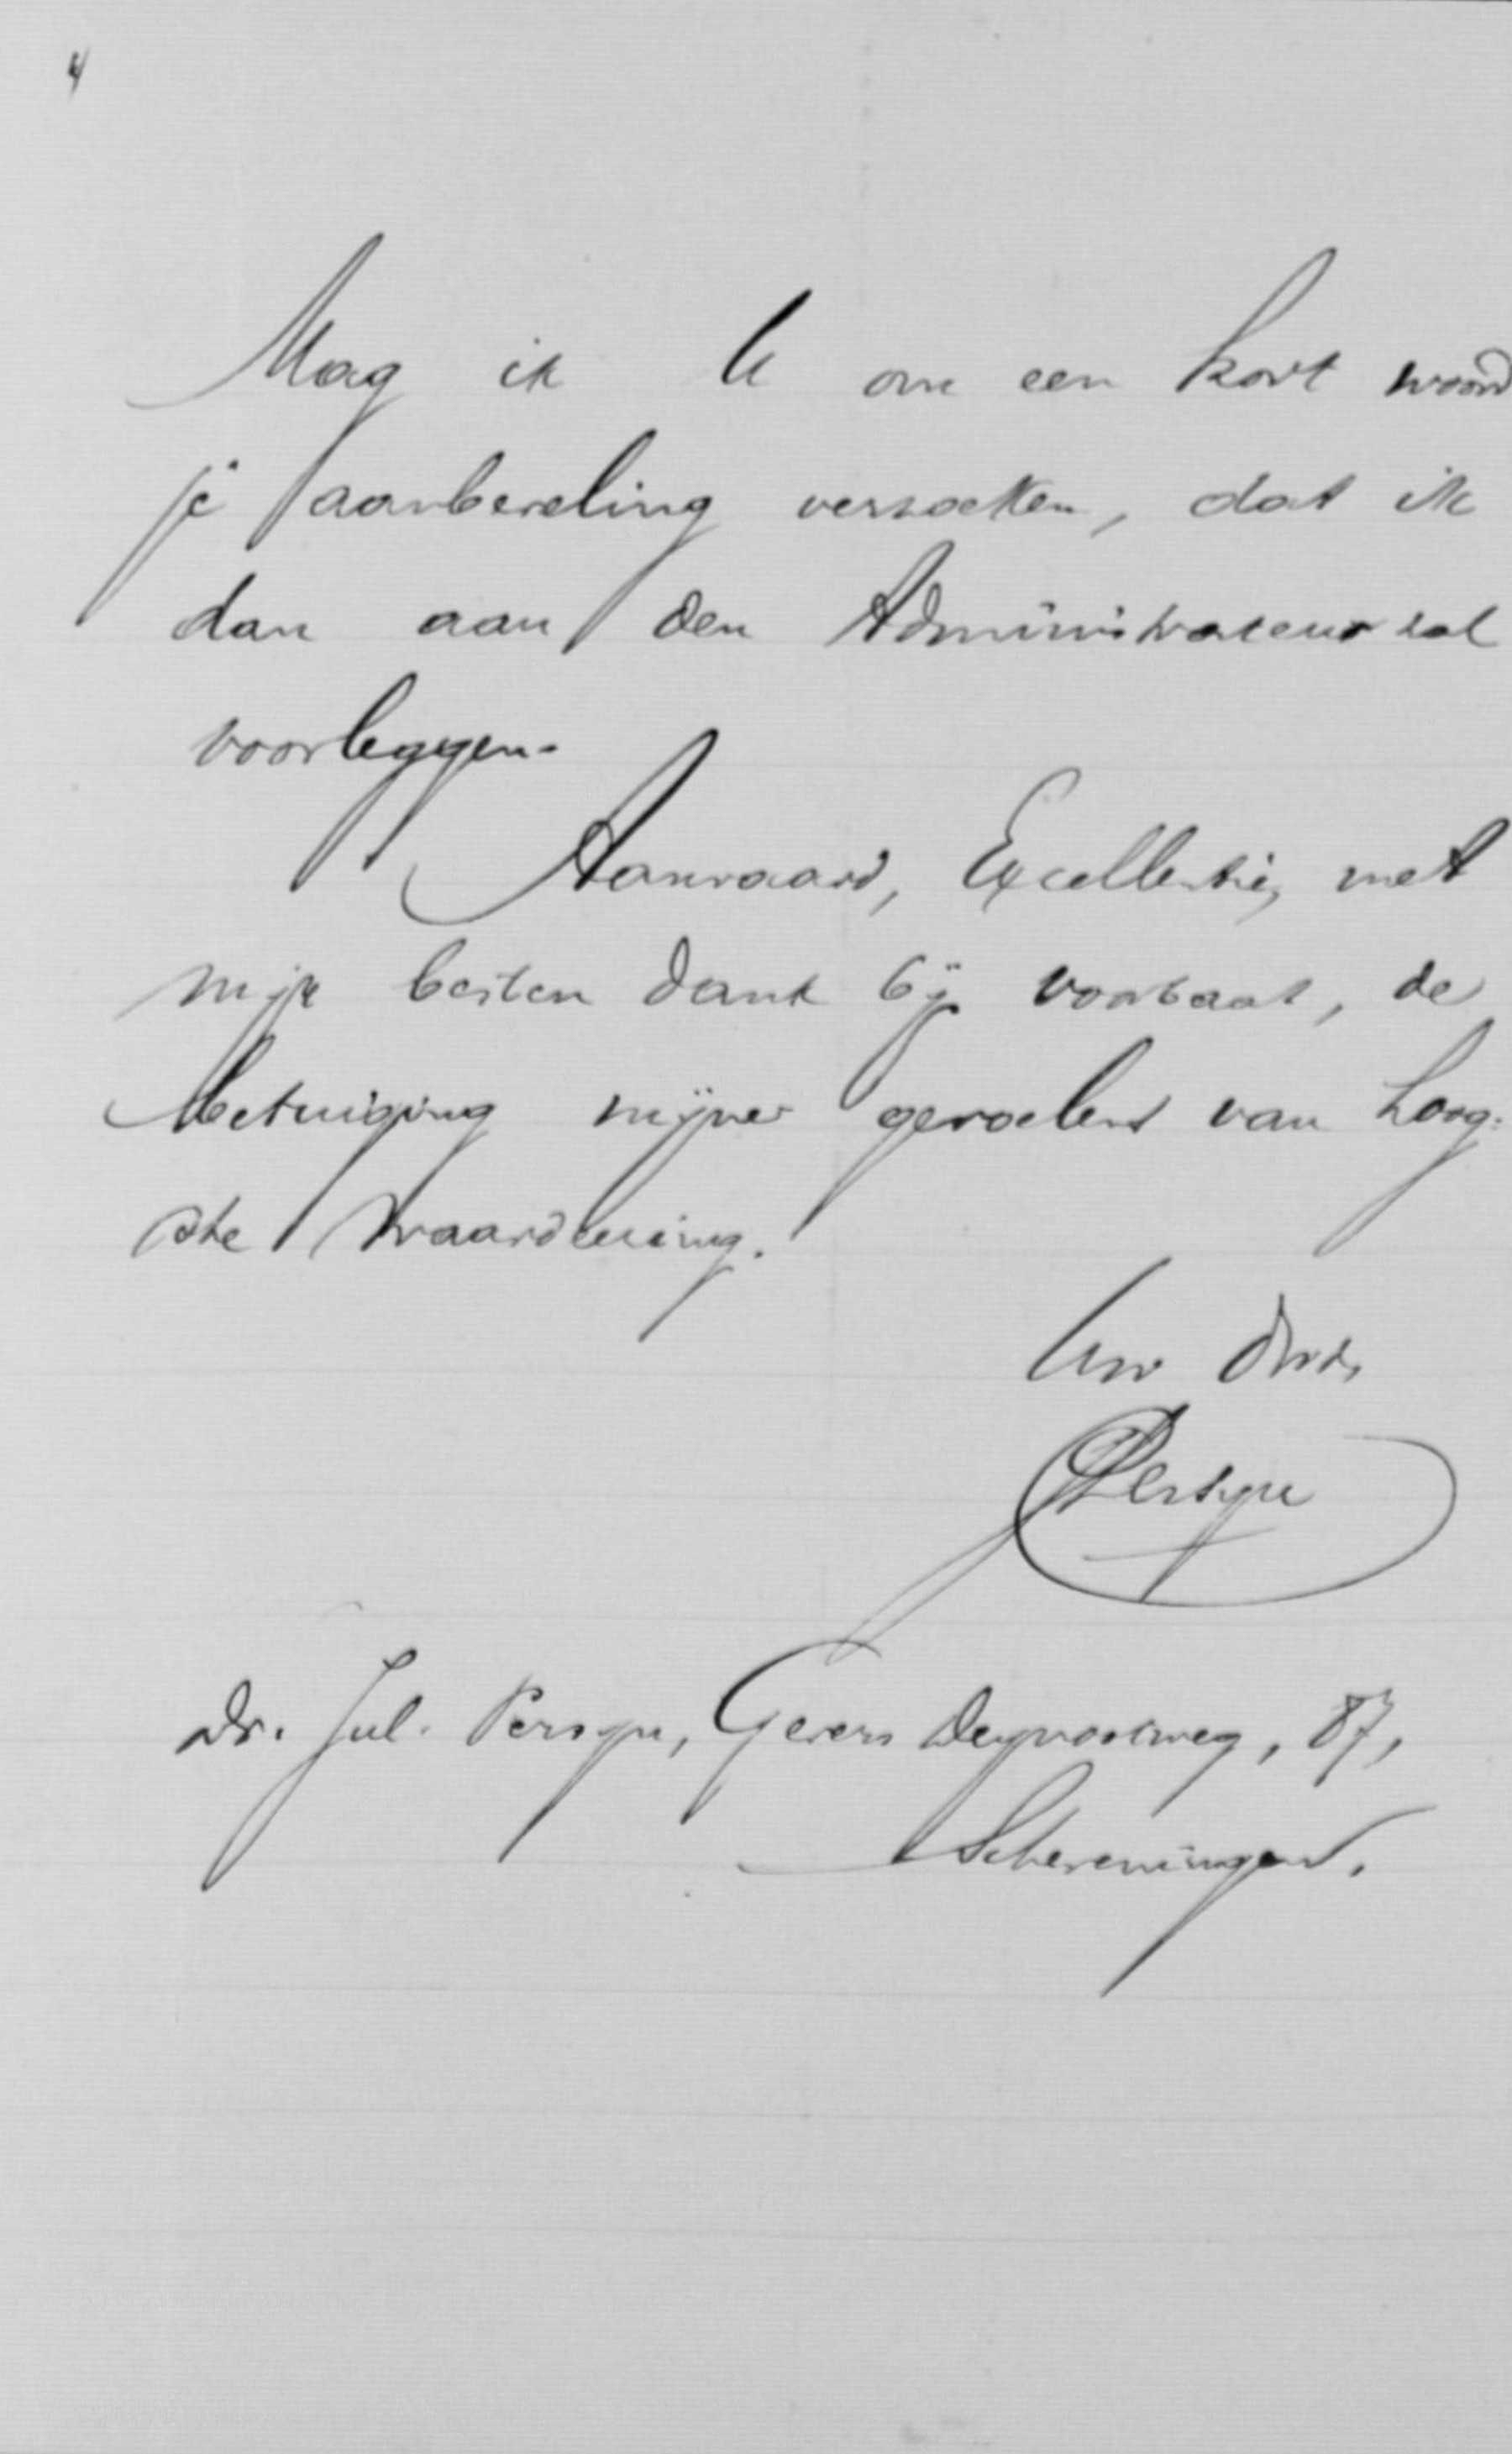 4
Mag ik U om een kort woord
je aanbeveling verzoeken, dat ik
dan aan den Administrateur zal
voorleggen.
Aanvaard, Excellentie, met
mijn besten dank bij voorbaat, de
betuiging mijner gevoelens van hoog-
ste waardeering.
Uw
JPersyn
Dr. Jul. Persyn, Gevers Deynootweg, 87,
Scheveningen.